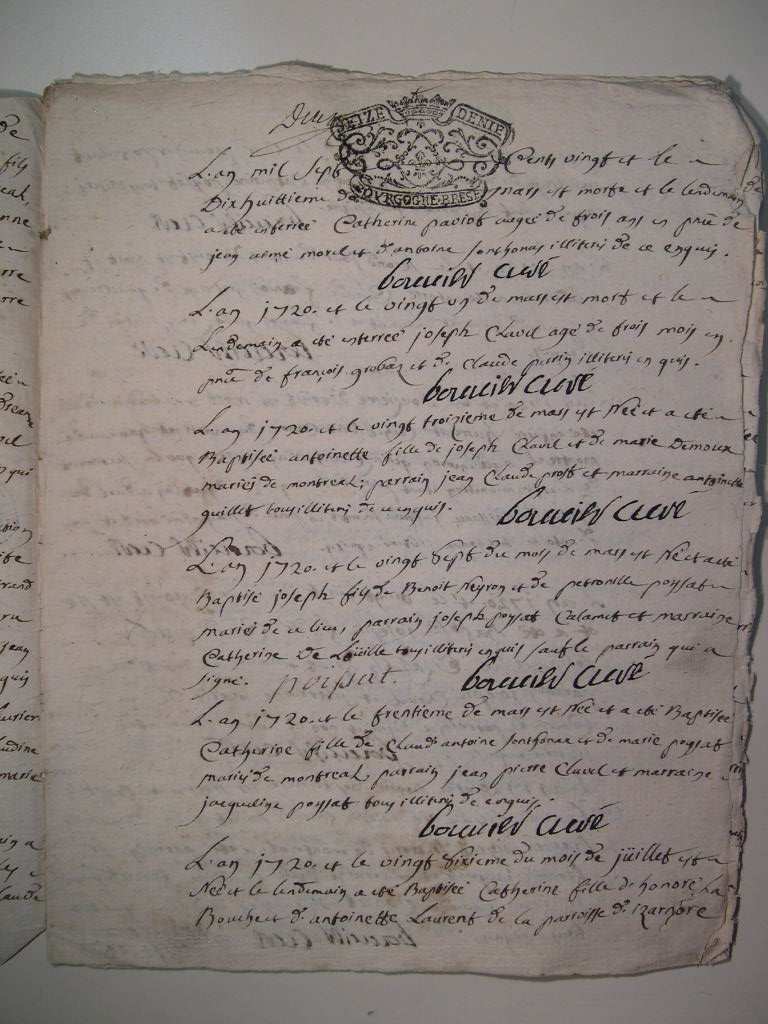 SEIZE DENIE
BOVRGOGNE BRESSE
L'an mil sept cents vingt et le
Dixhuittieme de mars est morte et le lendemain
a été enterreé Catherine paviot aageé de trois ans en pnce de
jean aimé morel et d'antoine sonthonas illiterés de ce enquis.
bouuier curé
L'an 1720. et le vingt un de mars est mort et le
Lendemain a été enterreé joseph Clavel agé de trois mois en
pnce de françois grobas et de Claude perrin illiterés enquis.
bouuier curé
L'an 1720. et le vingt troizieme de mars est Neé et a eté
Baptiseé antoinette fille de joseph Clavel et de marie Demoux
mariés de montreal; parrain jean Claude prost et marraine antoinette
guillet tous illiterés de ce enquis.
bouuier curé
L'an 1720. et le vingt sept du mois de mars est Né et a eté
Baptisé joseph fils de Benoit Neyron et de petronille poysat
mariés de ce lieu, parrain joseph poysat Calamet et marraine
Catherine De Loüille tous illiterés enquis sauf le parrain qui a
signé. poisat. bouuier curé
L'an 1720. et le trentieme de mars est Neé et a eté Baptiseé
Catherine fille de Claude antoine sonthonax et de marie poysat
mariés de montreal, parrain jean pierre Clavel et marraine
jacqueline poysat tous illiterés de ce enquis.
bouuier curé
L'an 1720. et le vingt sixieme du mois de juillet est
Neé et le lendemain a eté Baptiseé Catherine fille de honoré La
Bouche et d'antoinette Laurent de la parroisse d'izarnore